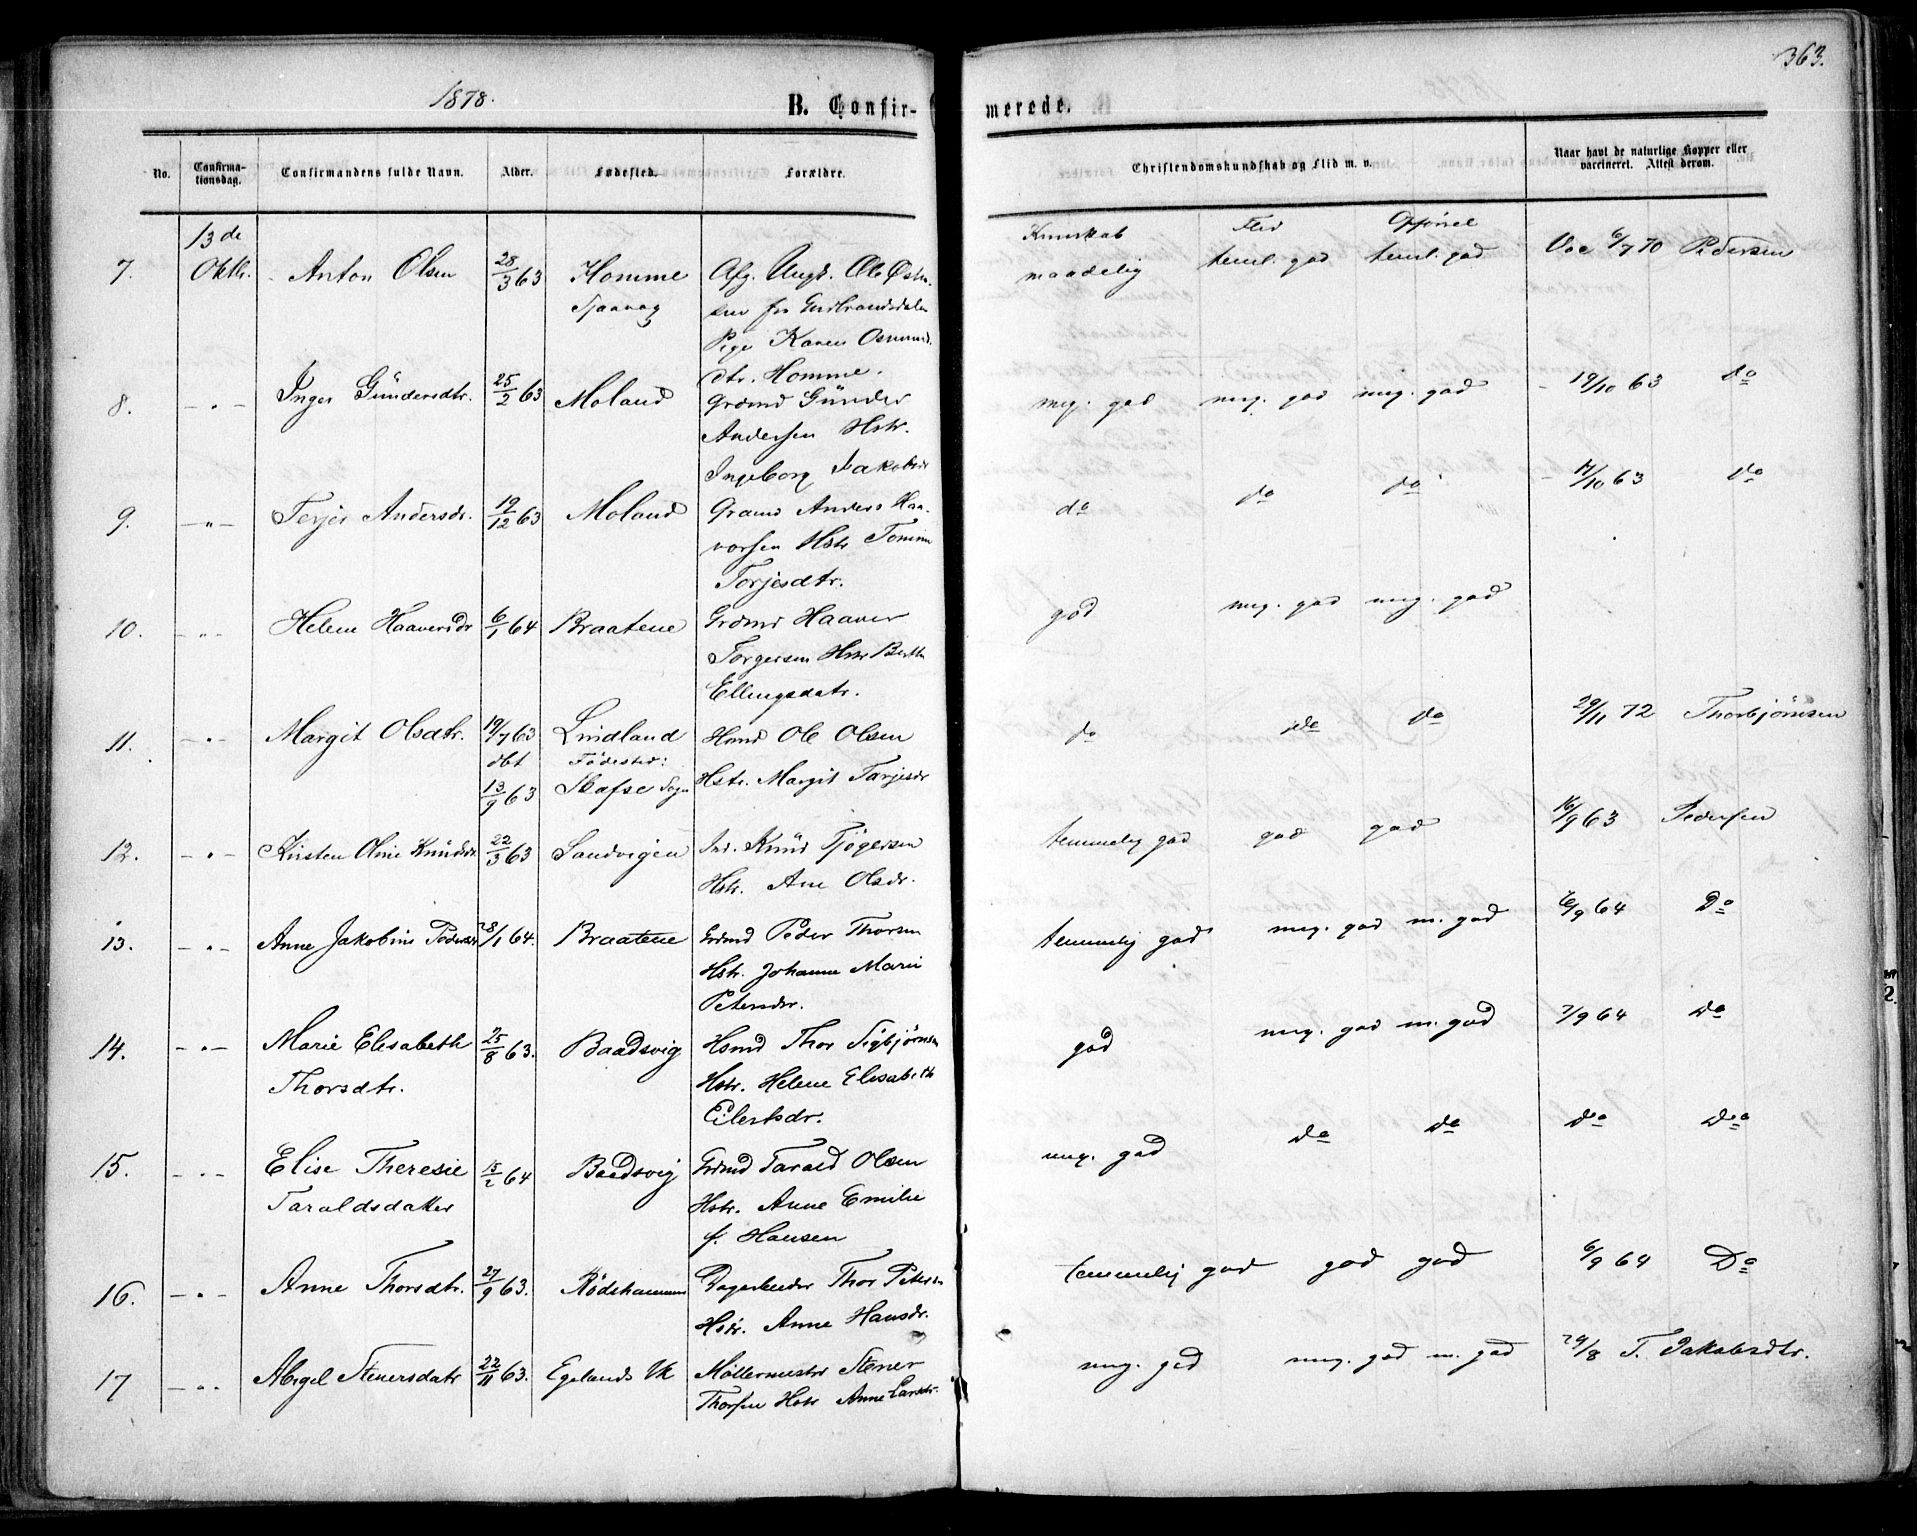 1878.
B. Confir-
merede.
363.
No.
Confirma-
tionsdag.
Confirmandens fulde Navn.
Alder.
Fødested.
Forældre.
Christendomskundskab og Flid m. v.
Naar havt de naturlige Kopper eller
vaccineret. Attest derom.
13de
Kunskab Flid Opførsel
7. Oktbr. Anton Olsen 28/3 63 Homme Afg. Ungk. Ole Østen- maadelig teml. god teml. god Vac 6/7 70 Pedersen
Tjaavag sen fra Gudbrandsdalen
Pige Karen Osmund.
dtr. Homme.
8. - " - Inger Gündersdtr. 25/2 63 Moland Grdmd Günder meg. god meg. god meg. god - 19/10 63 do
Andersen Hstr.
Ingeborg Jakobsdr
9. - " - Terjer Andersdr. 19/12 63 Moland Grdmd Anders Haa- do do do - 17/10 63 do
vorsen Hstr
Torjesdtr.
10. - " - Helene Haaversdr 6/1 64 Braatene Grdmd Haaver god meg. god meg. god
Torgersen Hstr Berthe
Ellingsdatr.
11. - " - Margit Olsdtr. 19/7 63 Lindland Hsmd Ole Olsen do do do 29/11 72 Thorbjørnsen
dbt Fødested:
13/9 63 Skafse Sogn Hstr. Margit Tarjesdr
12. - " - Kirsten Oline Knudsdr 22/3 63 Sandvigen Ind. Knud Tjøgersen temmelig god god god 16/9 63 Pedersen
Hstr. Ane Olsdr.
13. - " - Anne Jakobine Pedersdr 28/1 64. Braatene Grdmd Peder Thorsen temmelig god meg. god m. god 6/9 64 Do
Hstr. Johanne Marie
Petersdr.
14. - " - Marie Elisabeth 25/8 63. Baadsvig Hsmd Thor Sigbjørnsen god meg. god m. god 7/9 64 do
Thorsdtr. Hstr. Helene Elisabeth
Eilertsdr.
15. - " - Elise Theresie 15/2 64 Baadsvig Grdmd Tarald Olsen meg. god do do do do
Taraldsdatter Hstr. Anne Emilie
f. Hansen
16. - " - Anne Thorsdtr. 27/9 63. Rødshammer Dagarbeider Thor Petersen temmelig god god god 6/9 64 Do
Hstr. Anne Hansdr.
17 - " - Abigel Stenersdatr 22/11 63. Egelands Vk Møllermestr Stener meg. god meg. god m. god 29/8 T. Jakobsdtr.
Thorsen Hstr Anne Larsdr.